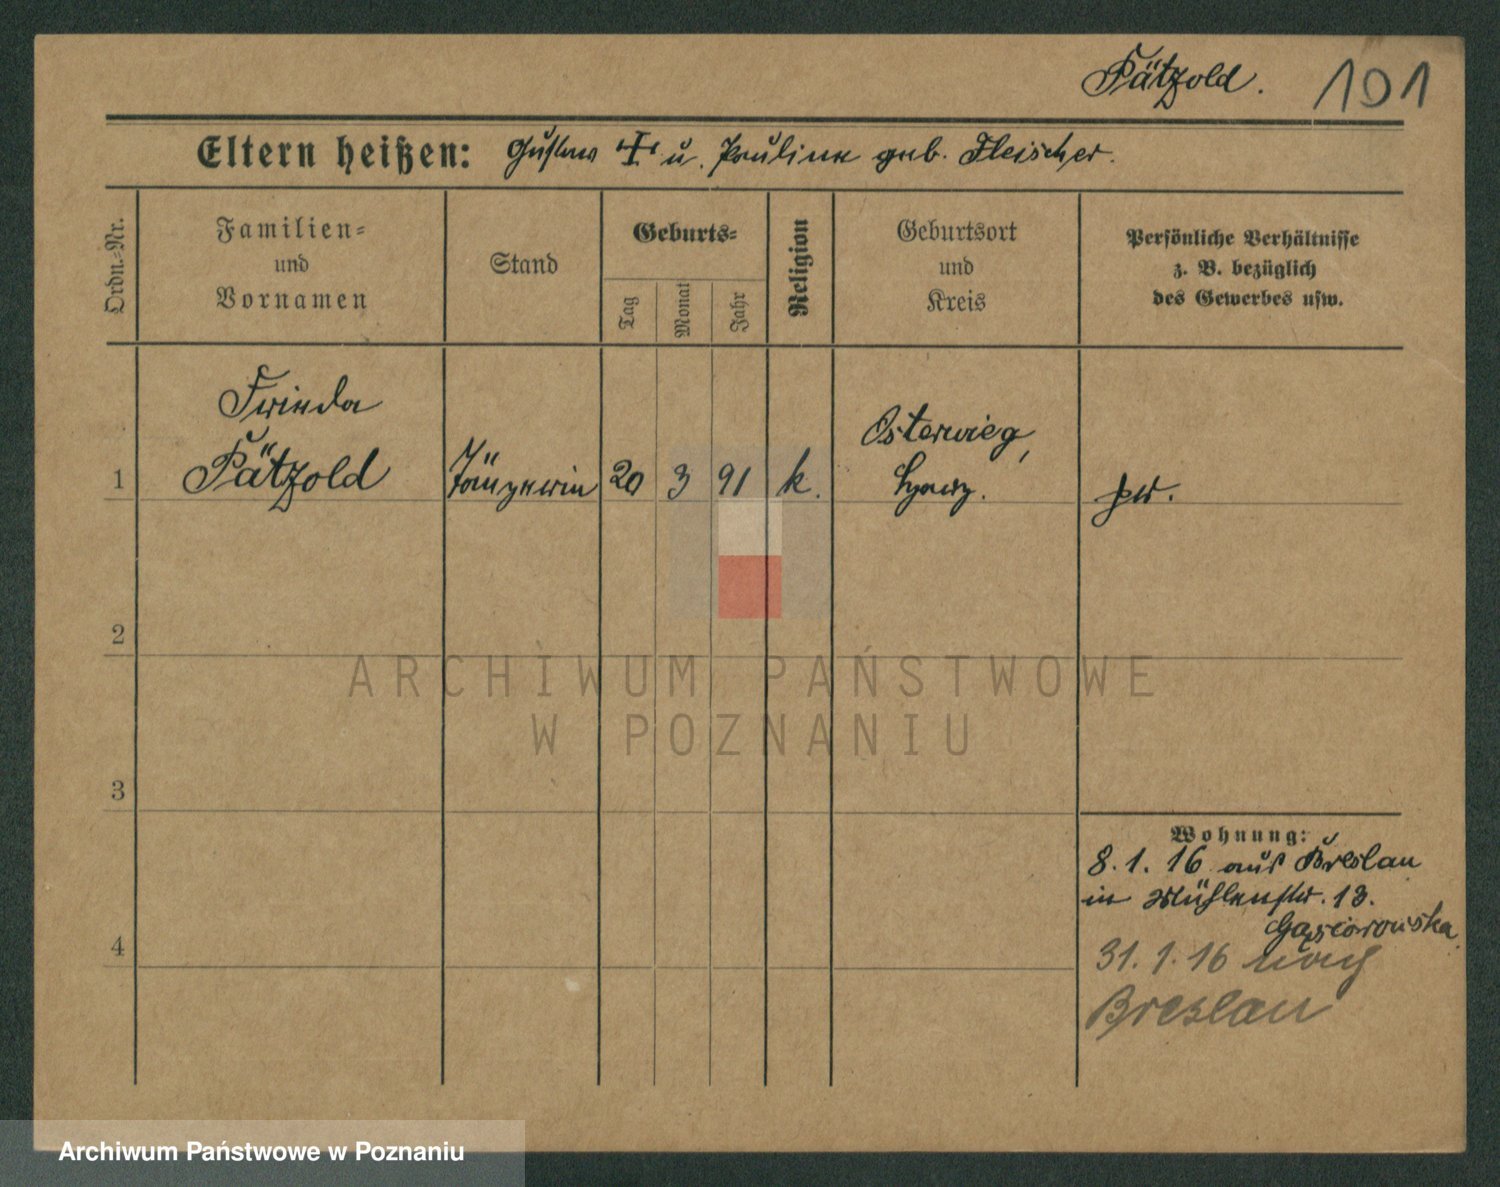 Pätzold.
101
Eltern heißen: Gustav † u. Pauline geb. Fleischer.
Ordn.-Nr.
Familien-
und
Vornamen
Stand
Geburts-
Tag
Monat
Jahr
Religion
Geburtsort
und
Kreis
Persönliche Verhältnisse
z. B. bezüglich
des Gewerbes usw.
Frieda
Pätzold
Osterwieg,
1 20 3 91 k.
2
ARCHIWUM PAŃSTWOWE
W POZNANIU
3
Wohnung:
8.1.16 aus Breslau
in Mühlenstr. 13.
Gąsiorowska
4
31.1.16 nach
Breslau
Archiwum Państwowe w Poznaniu